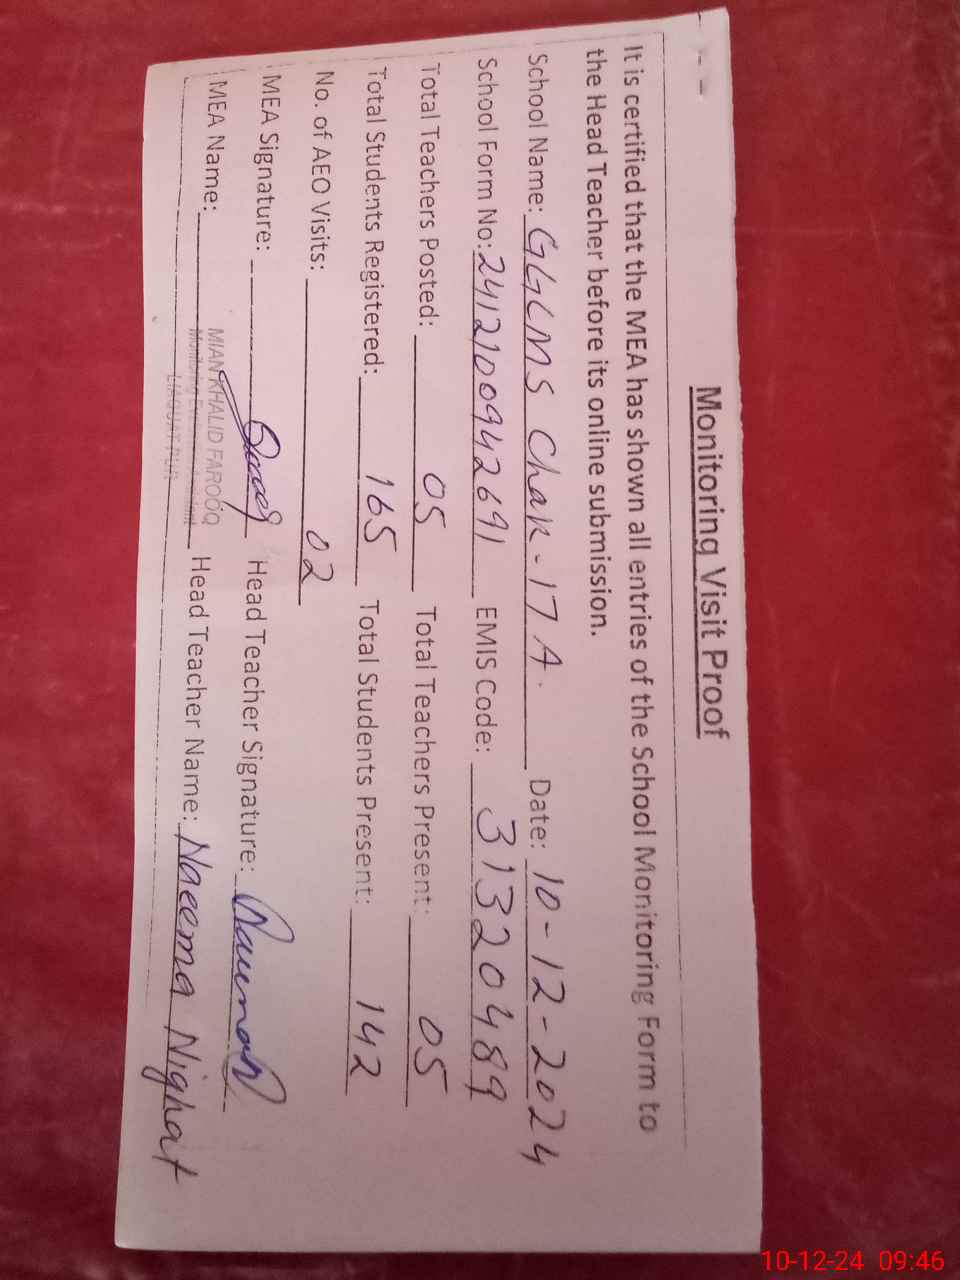 Monitoring Visit Proof
It is certified that the MEA has shown all entries of the School Monitoring Form to
the Head Teacher before its online submission.
School Name: GGCMS Chak-17 A. Date: 10-12-2024
School Form No: 2412100942691 EMIS Code: 31320489
Total Teachers Posted: 05 Total Teachers Present: 05
Total Students Registered: 165 Total Students Present: 142
No. of AEO Visits: 02
MEA Signature: Head Teacher Signature:
MEA Name: MIAN KHALID FAROOQ Head Teacher Name: Naeema Nighat
LIAQUAT PUR
10-12-24 09:46